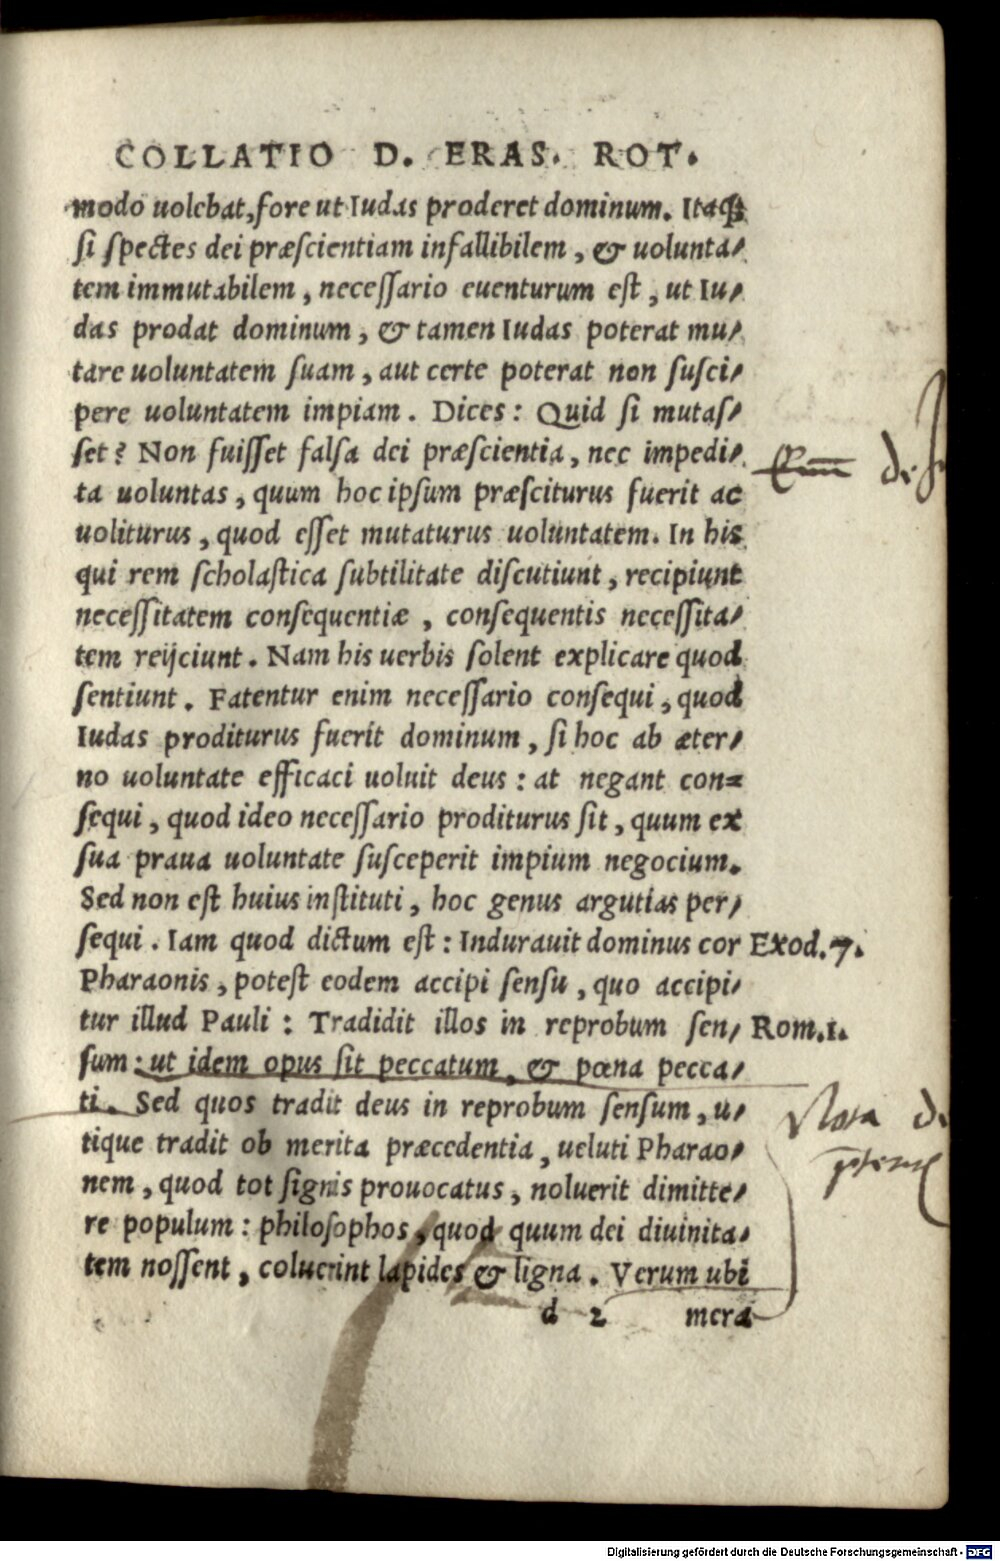 COLLATIO D. ERAS. ROT.
modo uolebat, fore ut Iudas proderet dominum. Itaqꝫ
si spectes dei præscientiam infallibilem, & uolunta-
tem immutabilem, necessario euenturum est, ut Iu-
das prodat dominum, & tamen Iudas poterat mu-
tare uoluntatem suam, aut certe poterat non susci-
pere uoluntatem impiam. Dices: Quid si mutas-
set? Non fuisset falsa dei præscientia, nec impedi-
ta uoluntas, quum hoc ipsum præsciturus fuerit ac
uoliturus, quod esset mutaturus uoluntatem. In his
qui rem scholastica subtilitate discutiunt, recipiunt
necessitatem consequentiæ, consequentis necessita-
tem reijciunt. Nam his uerbis solent explicare quod
sentiunt. Fatentur enim necessario consequi, quod
Iudas proditurus fuerit dominum, si hoc ab æter-
no uoluntate efficaci uoluit deus: at negant con=
sequi, quod ideo necessario proditurus sit, quum ex
sua praua uoluntate susceperit impium negocium.
Sed non est huius instituti, hoc genus argutias per-
sequi. Iam quod dictum est: Indurauit dominus cor Exod. 7.
Pharaonis, potest eodem accipi sensu, quo accipi-
tur illud Pauli: Tradidit illos in reprobum sen- Rom. 1.
sum: ut idem opus sit peccatum, & pœna pecca-
ti. Sed quos tradit deus in reprobum sensum, u-
tique tradit ob merita præcedentia, ueluti Pharao-
nem, quod tot signis prouocatus, noluerit dimitte-
re populum: philosophos, quod quum dei diuinita-
tem nossent, coluerint lapides & ligna. Verum ubi
d 2 mera
Nota
Digitalisierung gefördert durch die Deutsche Forschungsgemeinschaft - DFG